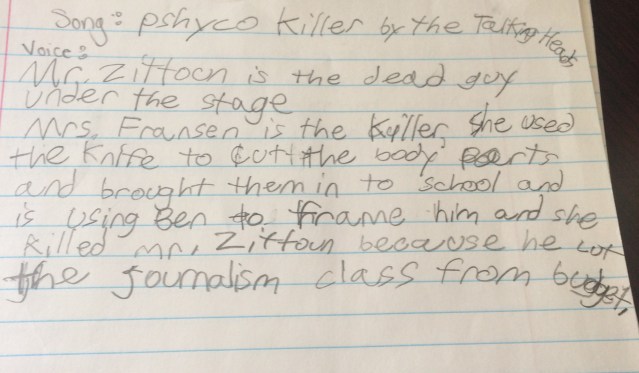 Song: pshyco killer by the Talking Heads
Voice:
Mr. Zittoun is the dead guy
under the stage
Mrs. Fransen is the Kyller, she used
the knife to cutt the body parts
and brought them in to school and
is using Ben to frame him and she
killed mr. Zittoun because he cut
the journalism class from budget.